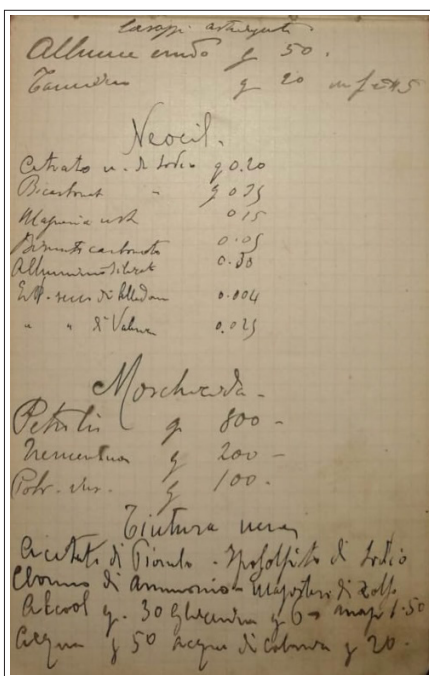 Allume crudo g 50.
Tannino g 20
Neocil.
Citrato n. di Sodio g 0.20
Bicarbonat " g 0.25
Magnesia usta 0.15
Bismuto carbonato 0.05
Alluminio silicat 0.30
Estr. secco di Belladon 0.004
" " di Valeriana 0.025
Moschicida -
Petrolio g 800 -
Trementina g 200 -
Polv. g 100.
Tintura nera
Acetato di Piombo - Iposolfito di Sodio
Cloruro di Ammonio - Magistero di Zolfo
Alcool g. 30 Glicerina g 6
Acqua g 50 acqua di Colonia g 20.